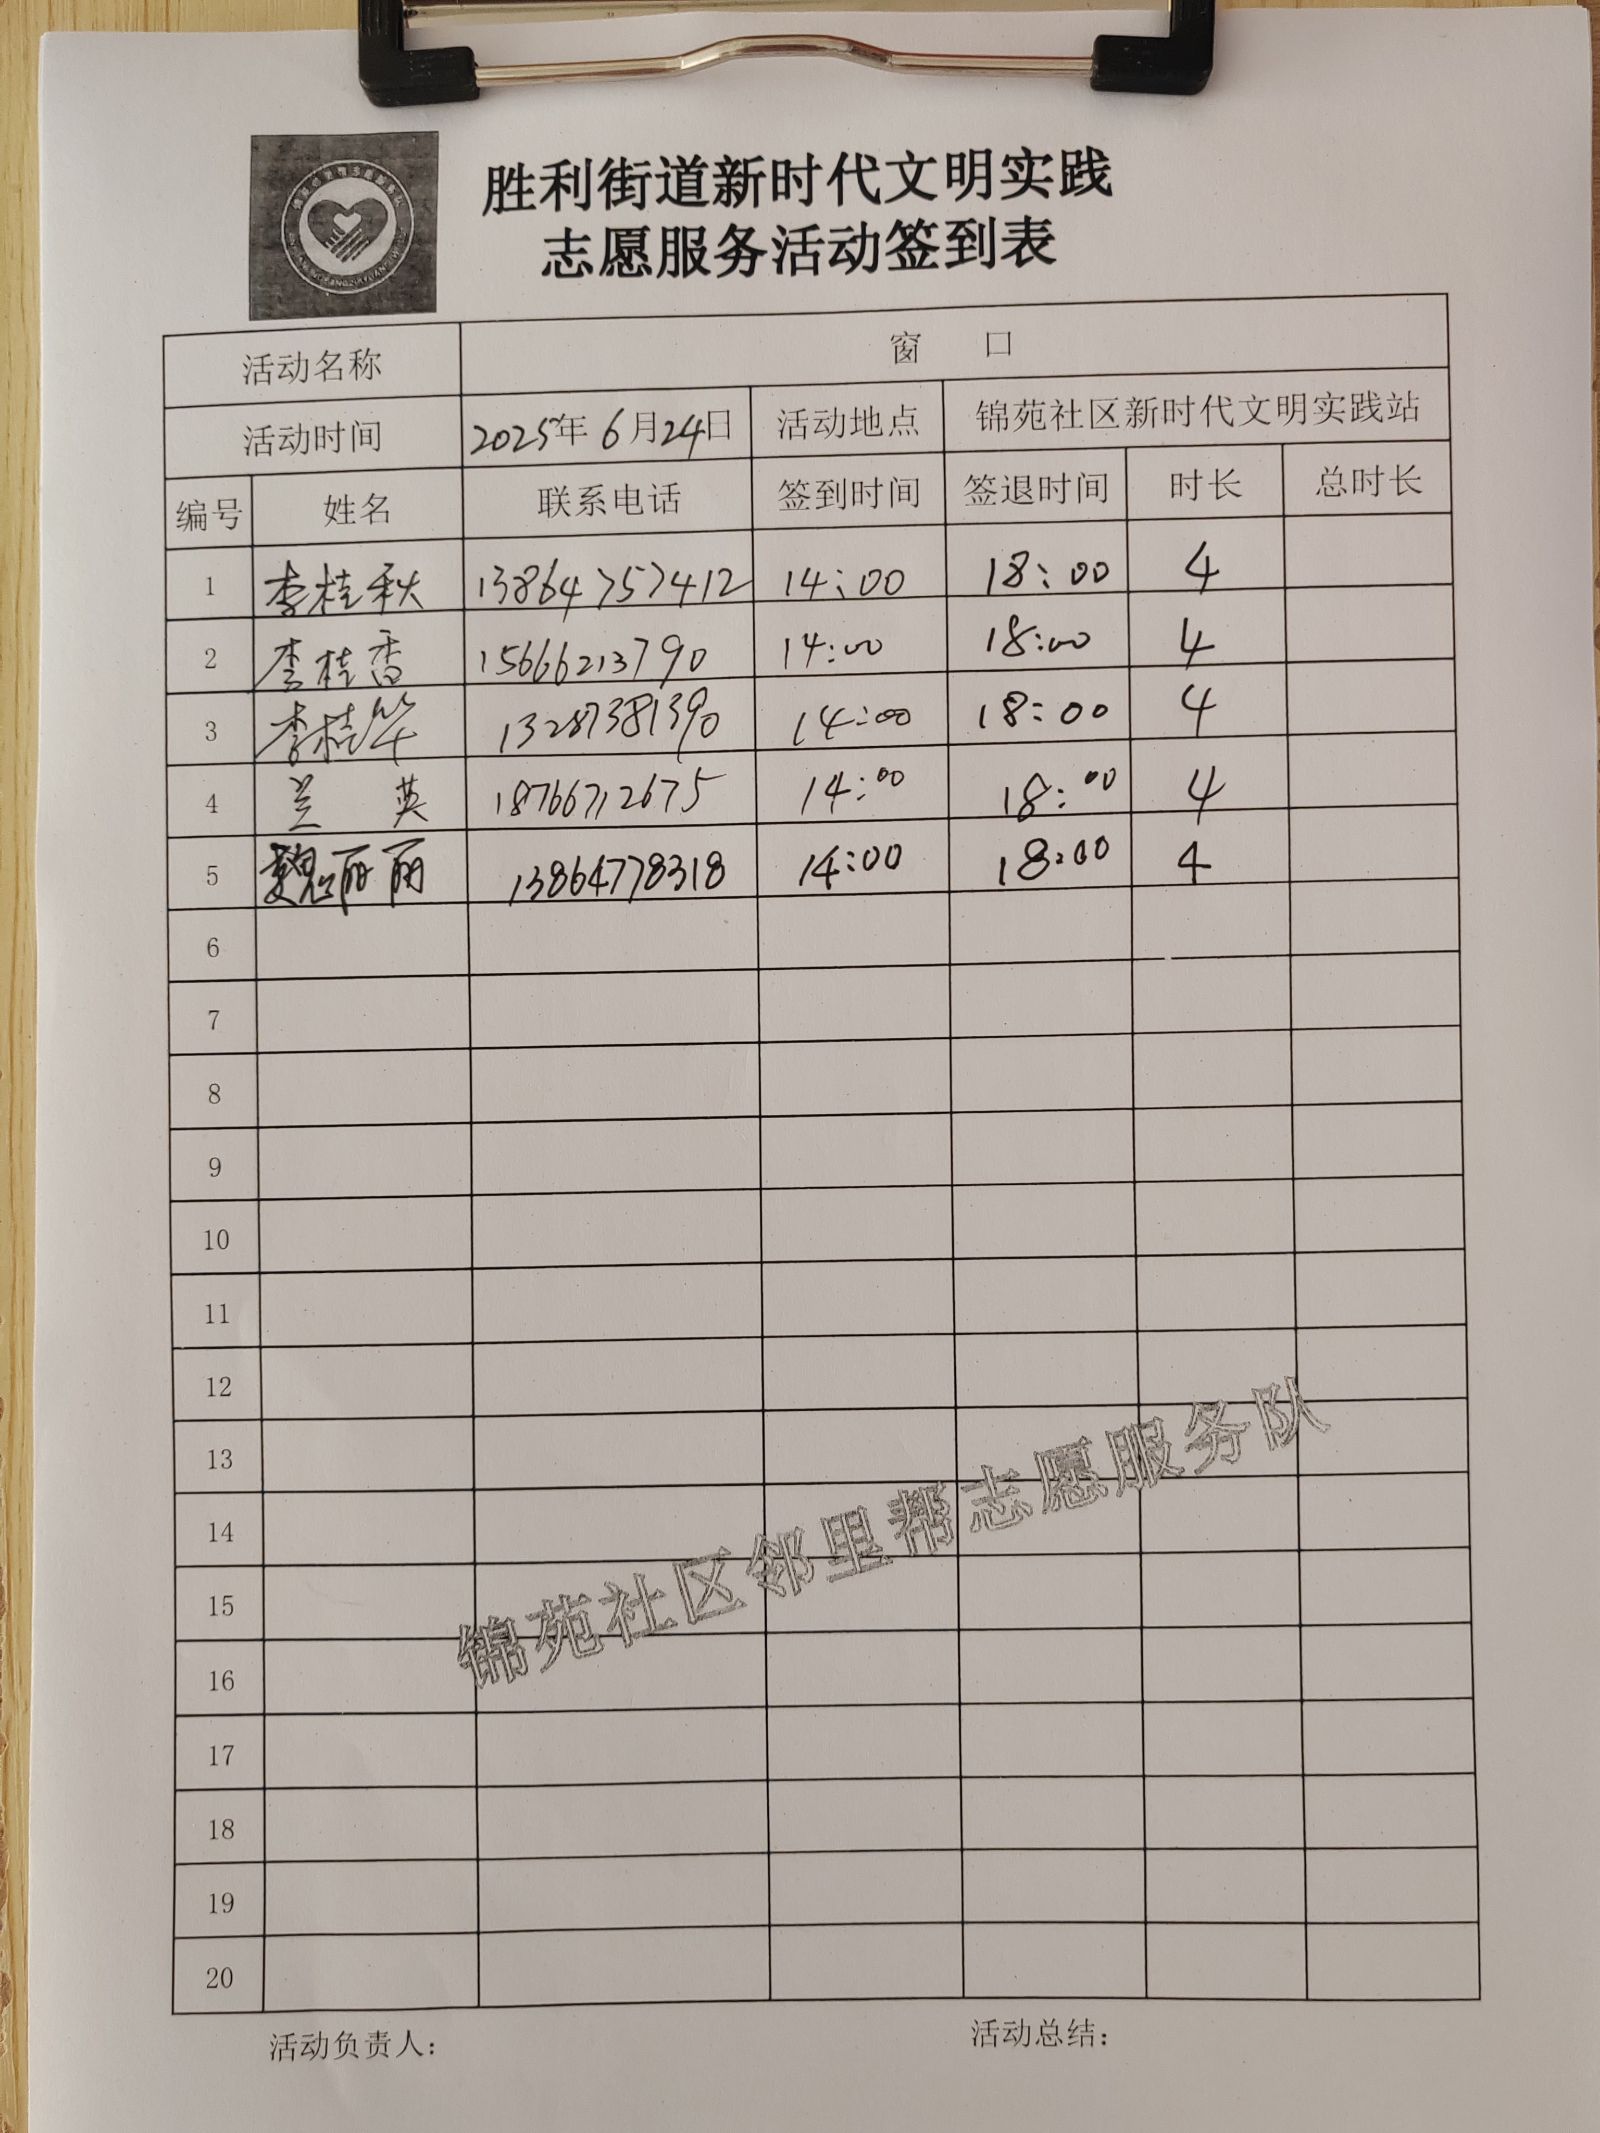 胜利街道新时代文明实践
志愿服务活动签到表
活动名称 窗 口
活动时间 2025年6月24日 活动地点 锦苑社区新时代文明实践站
编号 姓名 联系电话 签到时间 签退时间 时长 总时长
1 李桂秋 13864757412 14:00 18:00 4
2 李桂香 15666213790 14:00 18:00 4
3 李桂华 13287381390 14:00 18:00 4
4 兰 英 18766712675 14:00 18:00 4
5 魏丽丽 13864778318 14:00 18:00 4
6
7
8
9
10
11
12
13
14
15
16
17
18
19
20
锦苑社区邻里帮志愿服务队
活动负责人: 活动总结: